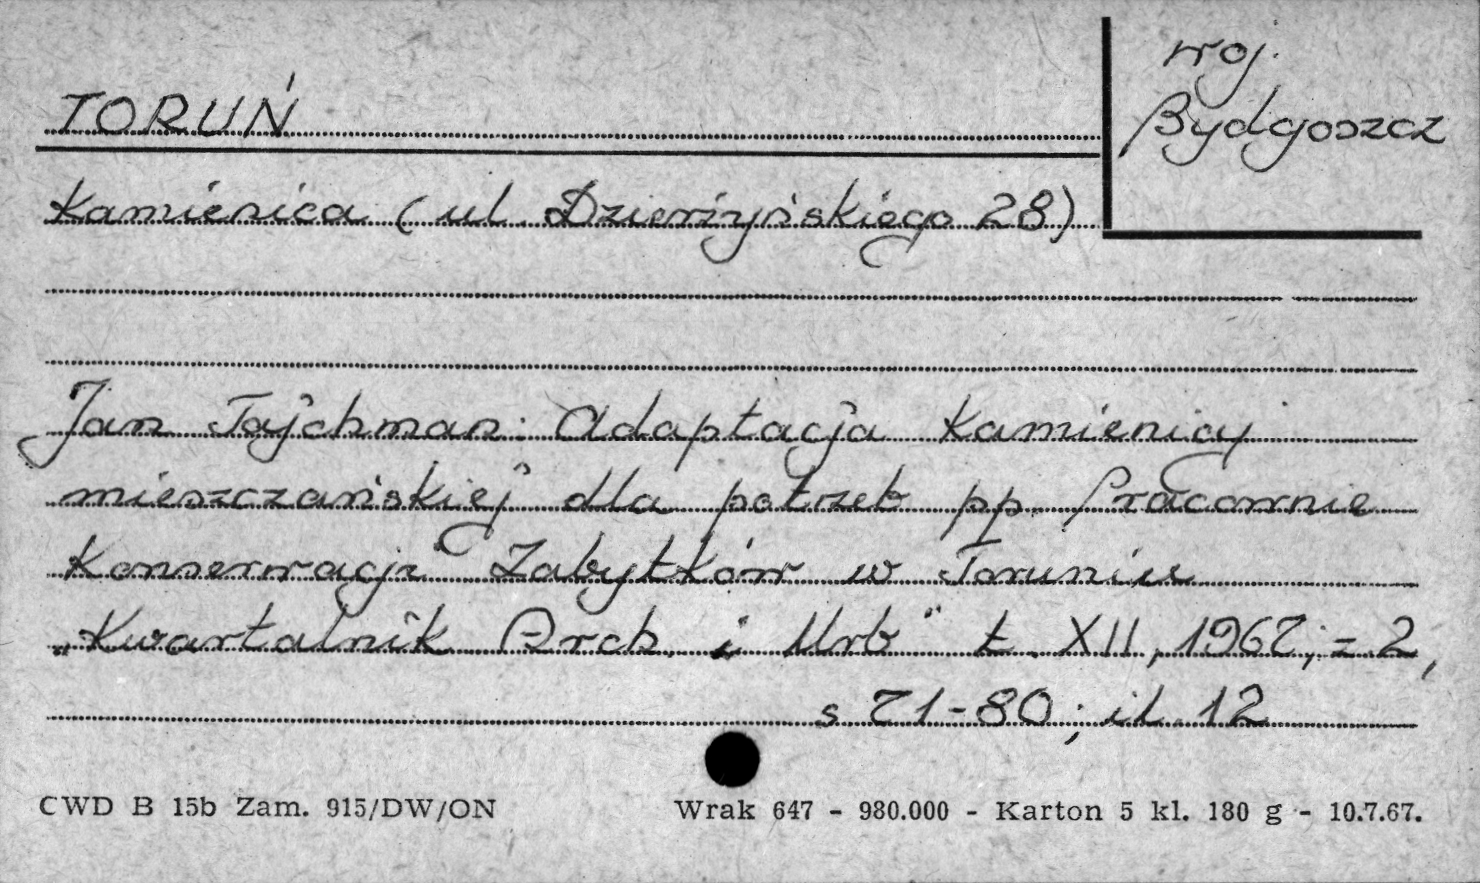 woj.
Bydgoszcz
TORUŃ
Kamienica (ul. Dzierżyńskiego 28)
Jan Tajchman: Adaptacja kamienicy
mieszczańskiej dla potrzeb pp. Pracownie
Konserwacji Zabytków w Toruniu
„Kwartalnik Arch. i Urb" t. XII, 1967; z 2,
s 71-80; il. 12
CWD B 15b Zam. 915/DW/ON
Wrak 647 - 980.000 - Karton 5 kl. 180 g - 10.7.67.